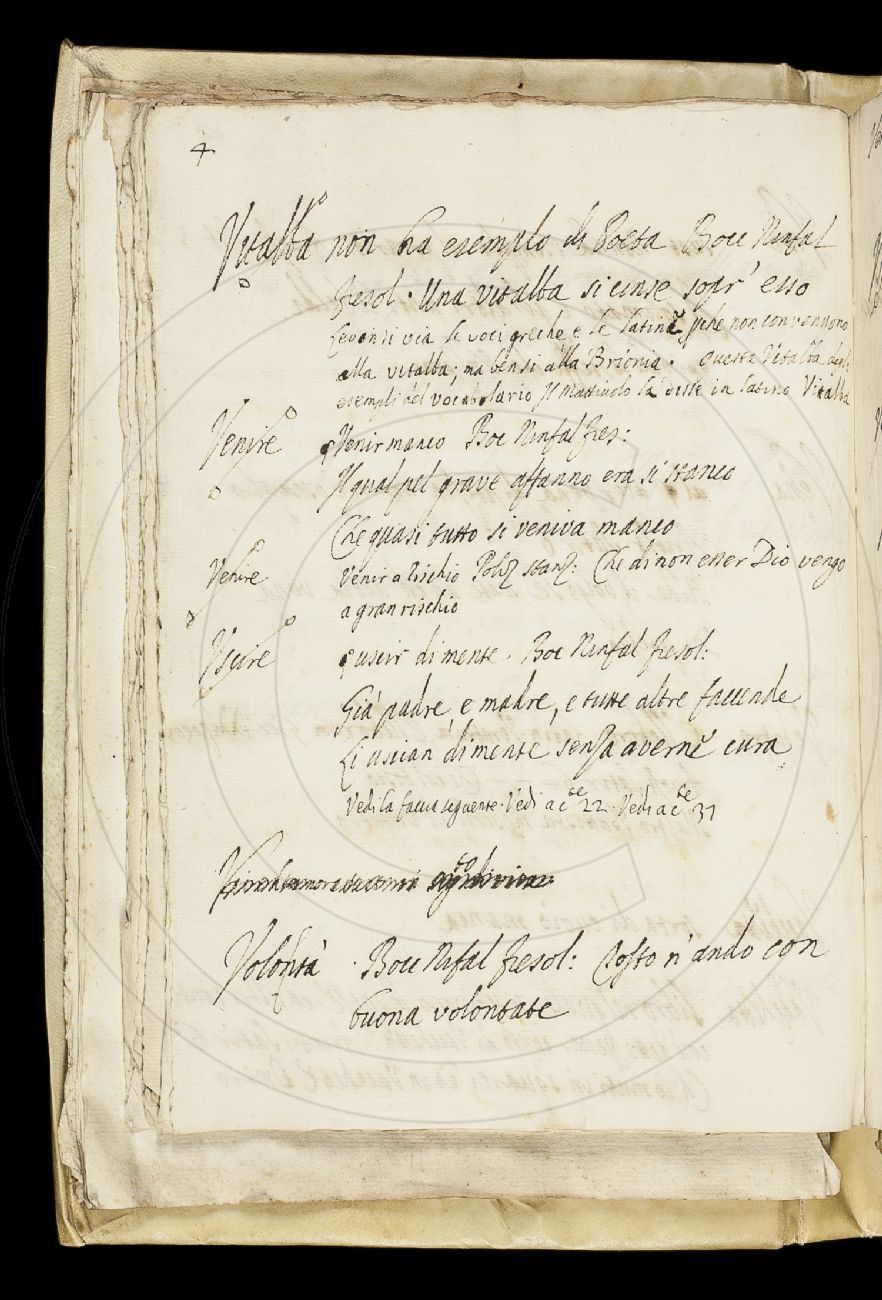 4
Vitalba non ha esemplo di Poeta Bocc Ninfal
fiesol. Una vitalba si cinse sopr' esso
Levonsi via le voci greche e le latine, pche non convennono
alla vitalba; ma bensi alla Brionia. Questa Vitalba degli
esempli del vocabolario Il Mattiuolo la disse in latino Vitalba
Venire Venir manco Boc Ninfal fies:
Il qual pel grave affanno era si stanco
Che quasi tutto si veniva manco
Venire Venir a rischio Poliz stanz: Che di non esser Dio vengo
a gran rischio
Uscire uscir di mente. Boc Ninfal fiesol:
Già padre, e madre, e tutte altre faccende
Li uscian di mente senza averne cura
Vedi la faccia seguente. Vedi a cte 22. Vedi a cte 31
Volontà. Bocc Nifal fiesol: Tosto n' andò con
buona volontate